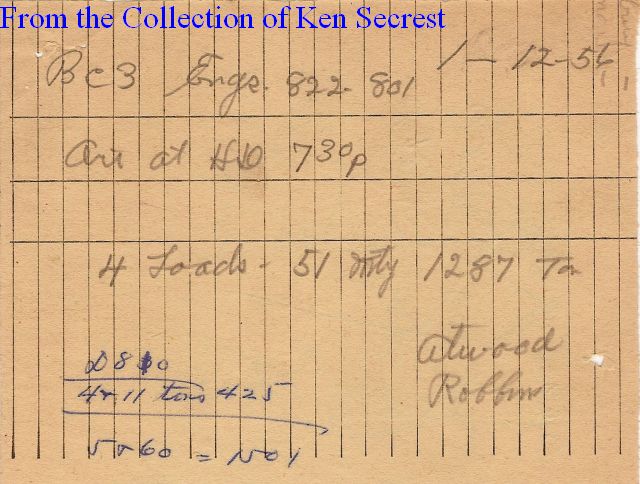 From the Collection of Ken Secrest
BC3 Engs. 822-801 1-12-56
Arr at HD 730p
4 Loads - 51 Mty 1287 Tn
Atwood
Robbins
D810
4+11 tons 425
5+60 = 1501